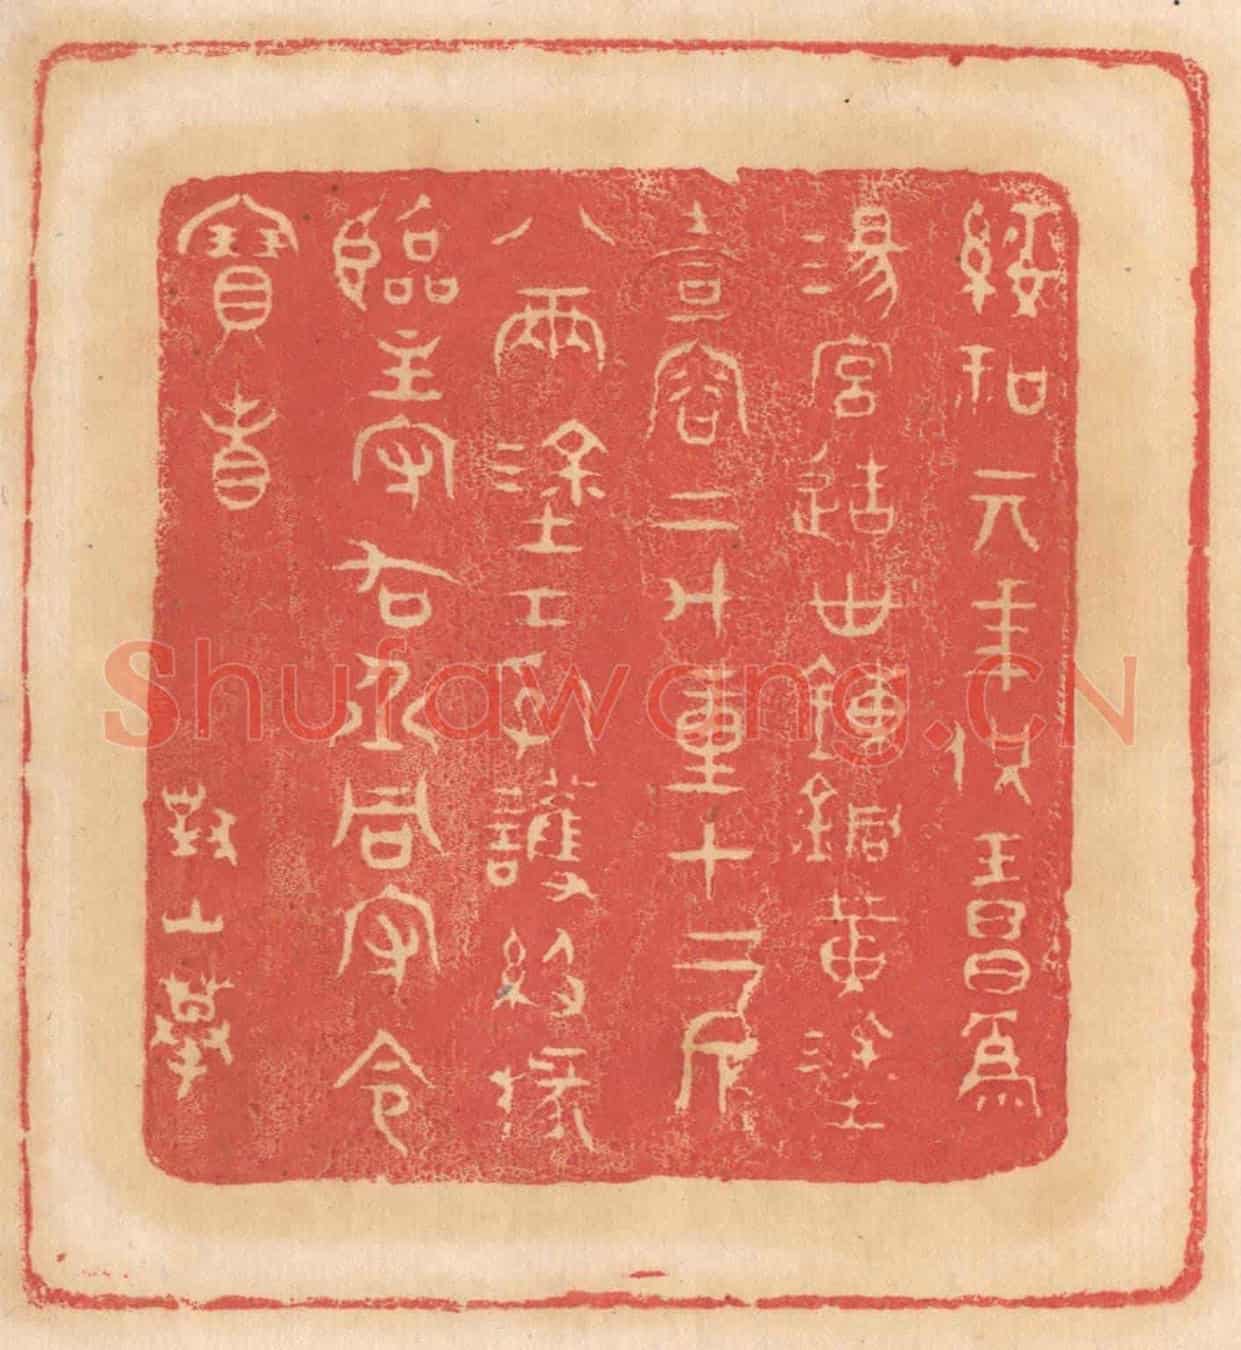 綏和元年供王昌為
湯官造卅鍊銅黃塗
壺容二斗重十二斤
八兩塗工乳護級掾
臨主守右丞同守令
寶省
山摹
Shufawang.CN